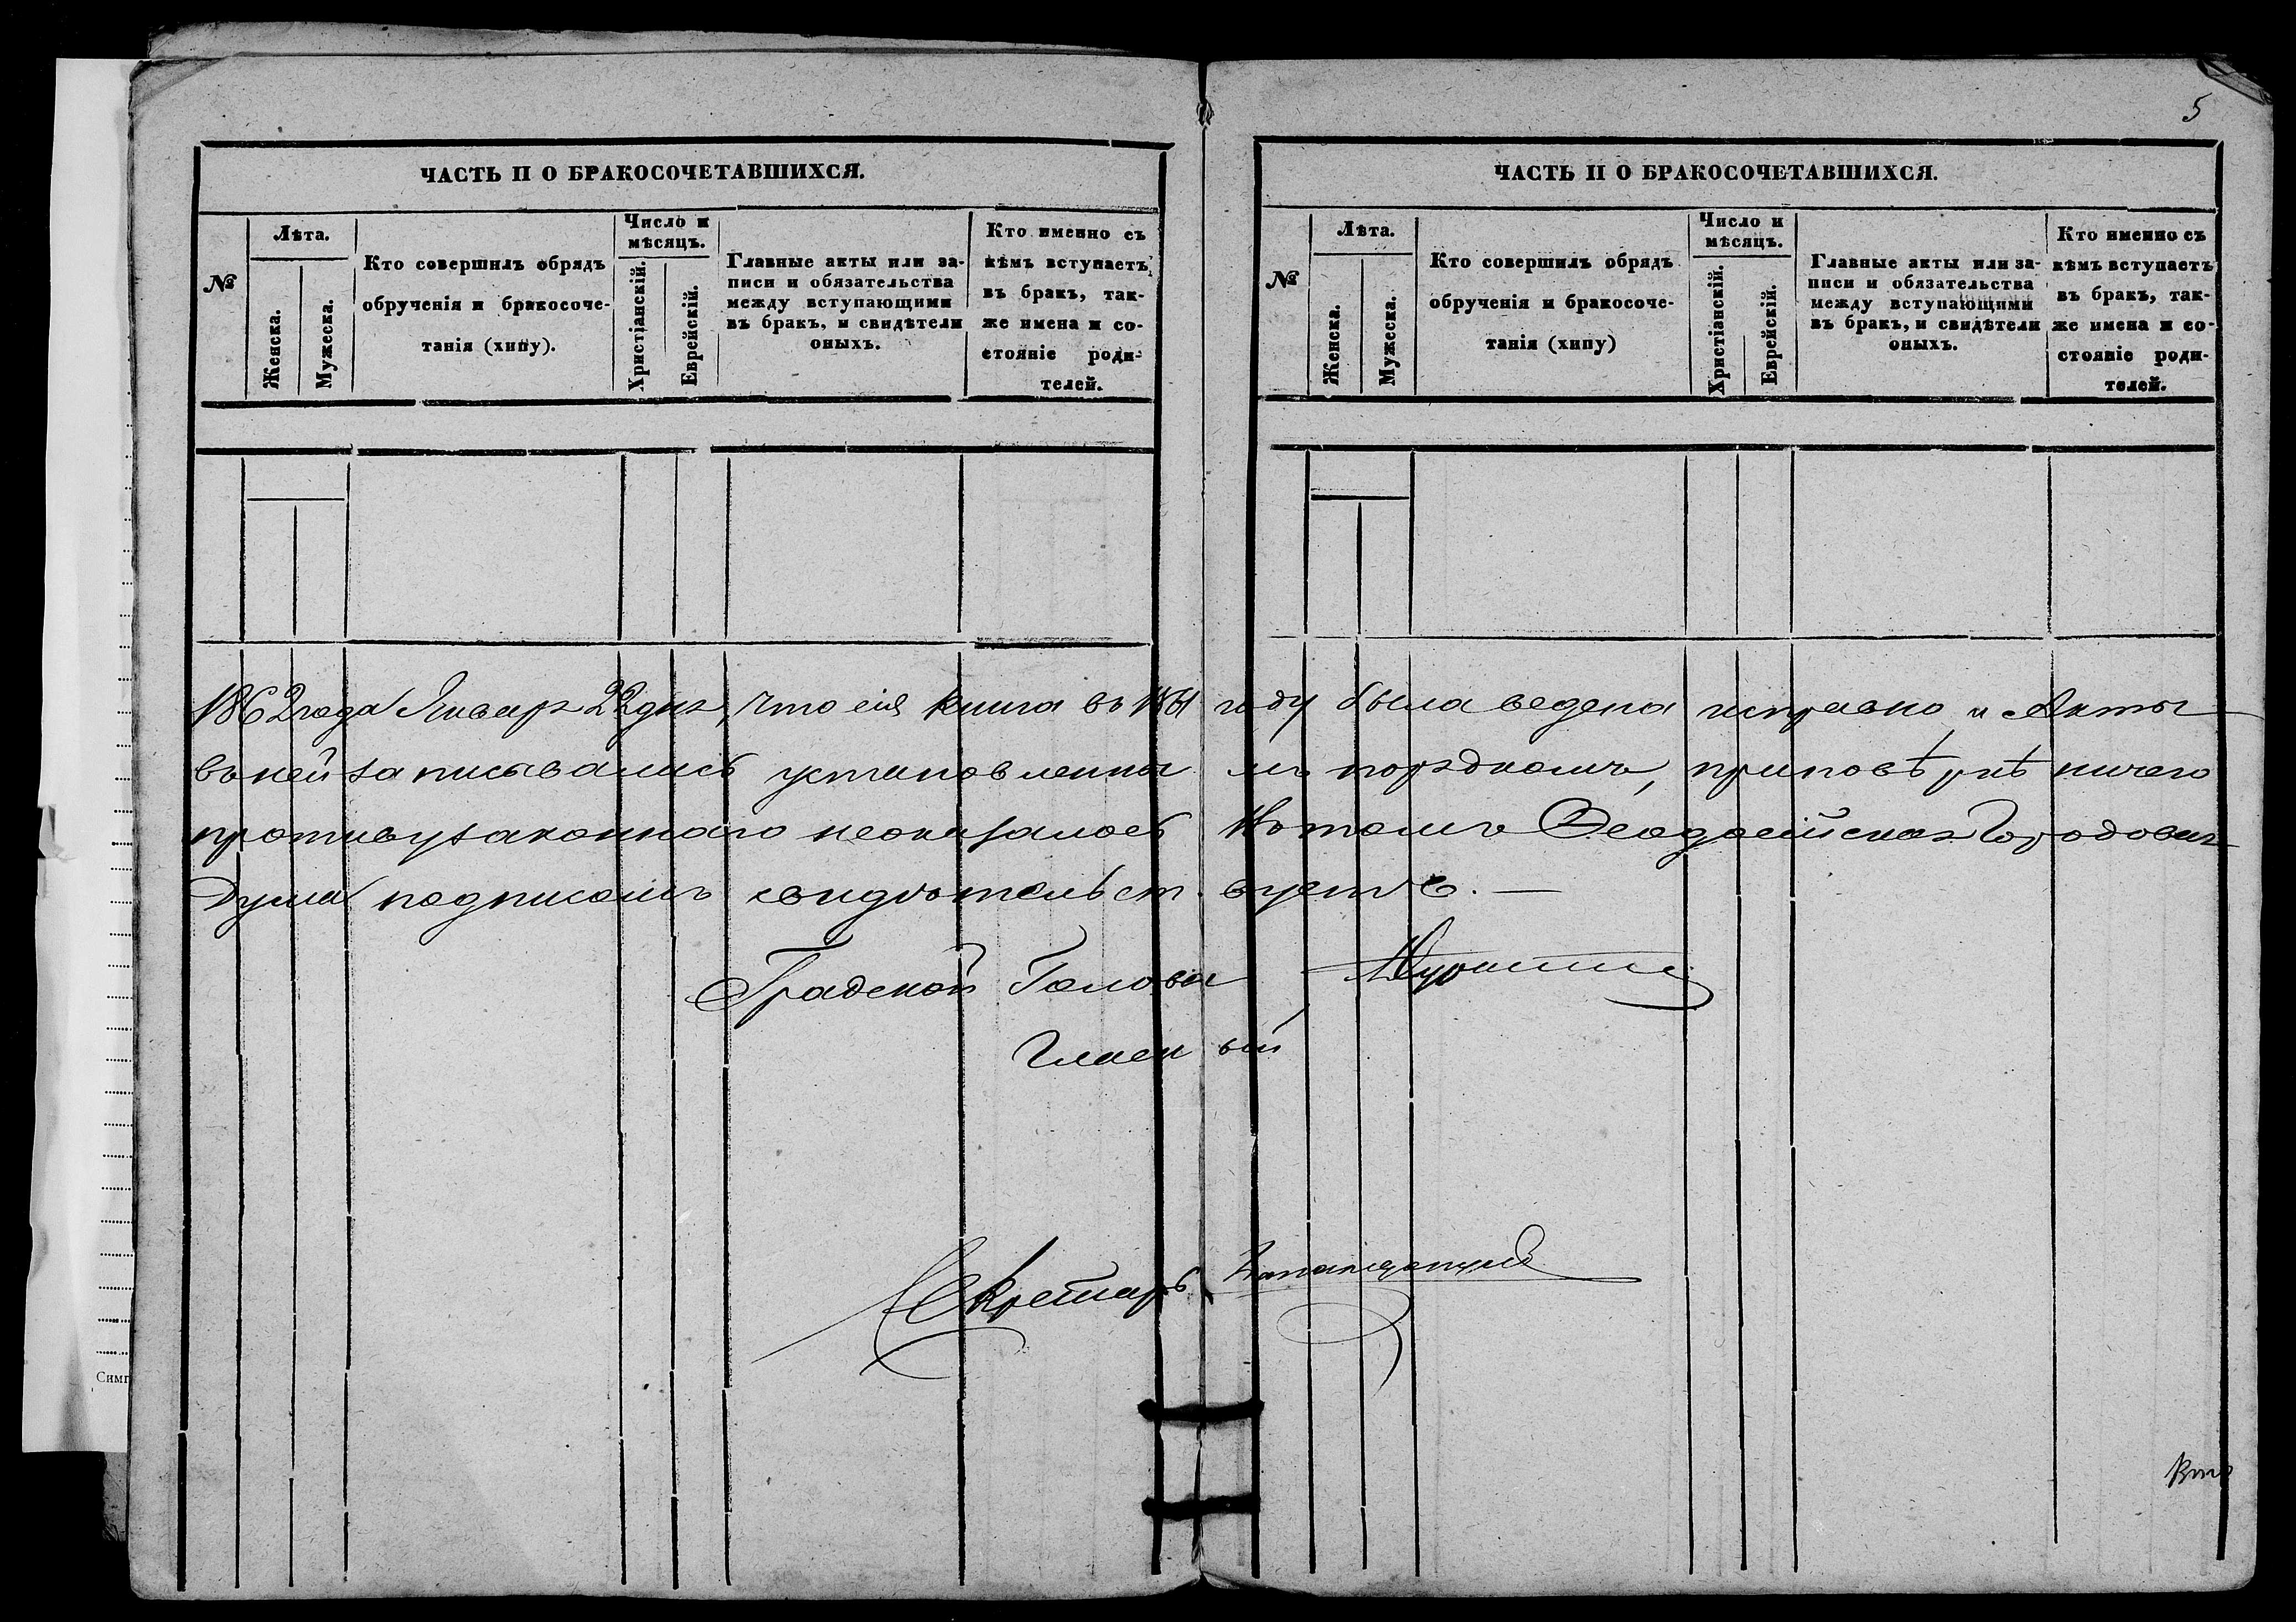 5
ЧАСТЬ II О БРАКОСОЧЕТАВШИХСЯ.
№
Лѣта.
Женска.
Мужеска.
Кто совершилъ обрядъ
обрученія и бракосоче-
танія (хипу).
Число и
мѣсяцъ.
Христіанскій.
Еврейскій.
Главные акты или за-
писи и обязательства
между вступающими
въ бракъ, и свидѣтели
оныхъ.
Кто именно съ
кѣмъ вступаетъ
въ бракъ, так-
же имена и со-
стояніе роди-
телей.
ЧАСТЬ II О БРАКОСОЧЕТАВШИХСЯ.
№
Лѣта.
Женска.
Мужеска.
Кто совершилъ обрядъ
обрученія и бракосоче-
танія (хипу)
Число и
мѣсяцъ.
Христіанскій.
Еврейскій.
Главные акты или за-
писи и обязательства
между вступающими
въ бракъ, и свидѣтели
оныхъ.
Кто именно съ
кѣмъ вступаетъ
въ бракъ, так-
же имена и со-
стояніе роди-
телей.
1862 года Января 22 дня, что сія книга въ 1861 году была ведена исправно и Акты
въ ней записывались установленнымъ порядкомъ, при повѣркѣ ничего
противузаконнаго неоказалось въ томъ Феодосійская Городовая
Дума подписомъ свидѣтельствуетъ. —
Градской Голова
Гласный
Секретарь
Симг